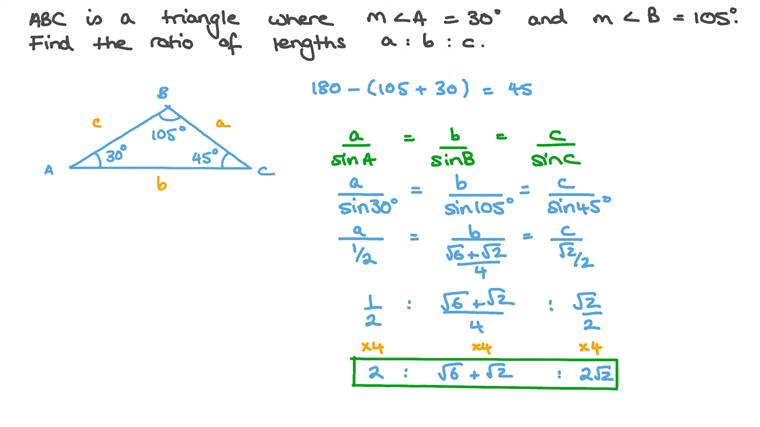 ABC is a triangle where m∠A = 30° and m∠B = 105°.
Find the ratio of lengths a : b : c.
180 − (105 + 30) = 45
B
c
105°
a
A
30°
45°
C
b
a/sinA = b/sinB = c/sinC
a/sin30° = b/sin105° = c/sin45°
a/(1/2) = b/((√6+√2)/4) = c/(√2/2)
1/2 : (√6+√2)/4 : √2/2
×4 ×4 ×4
2 : √6+√2 : 2√2